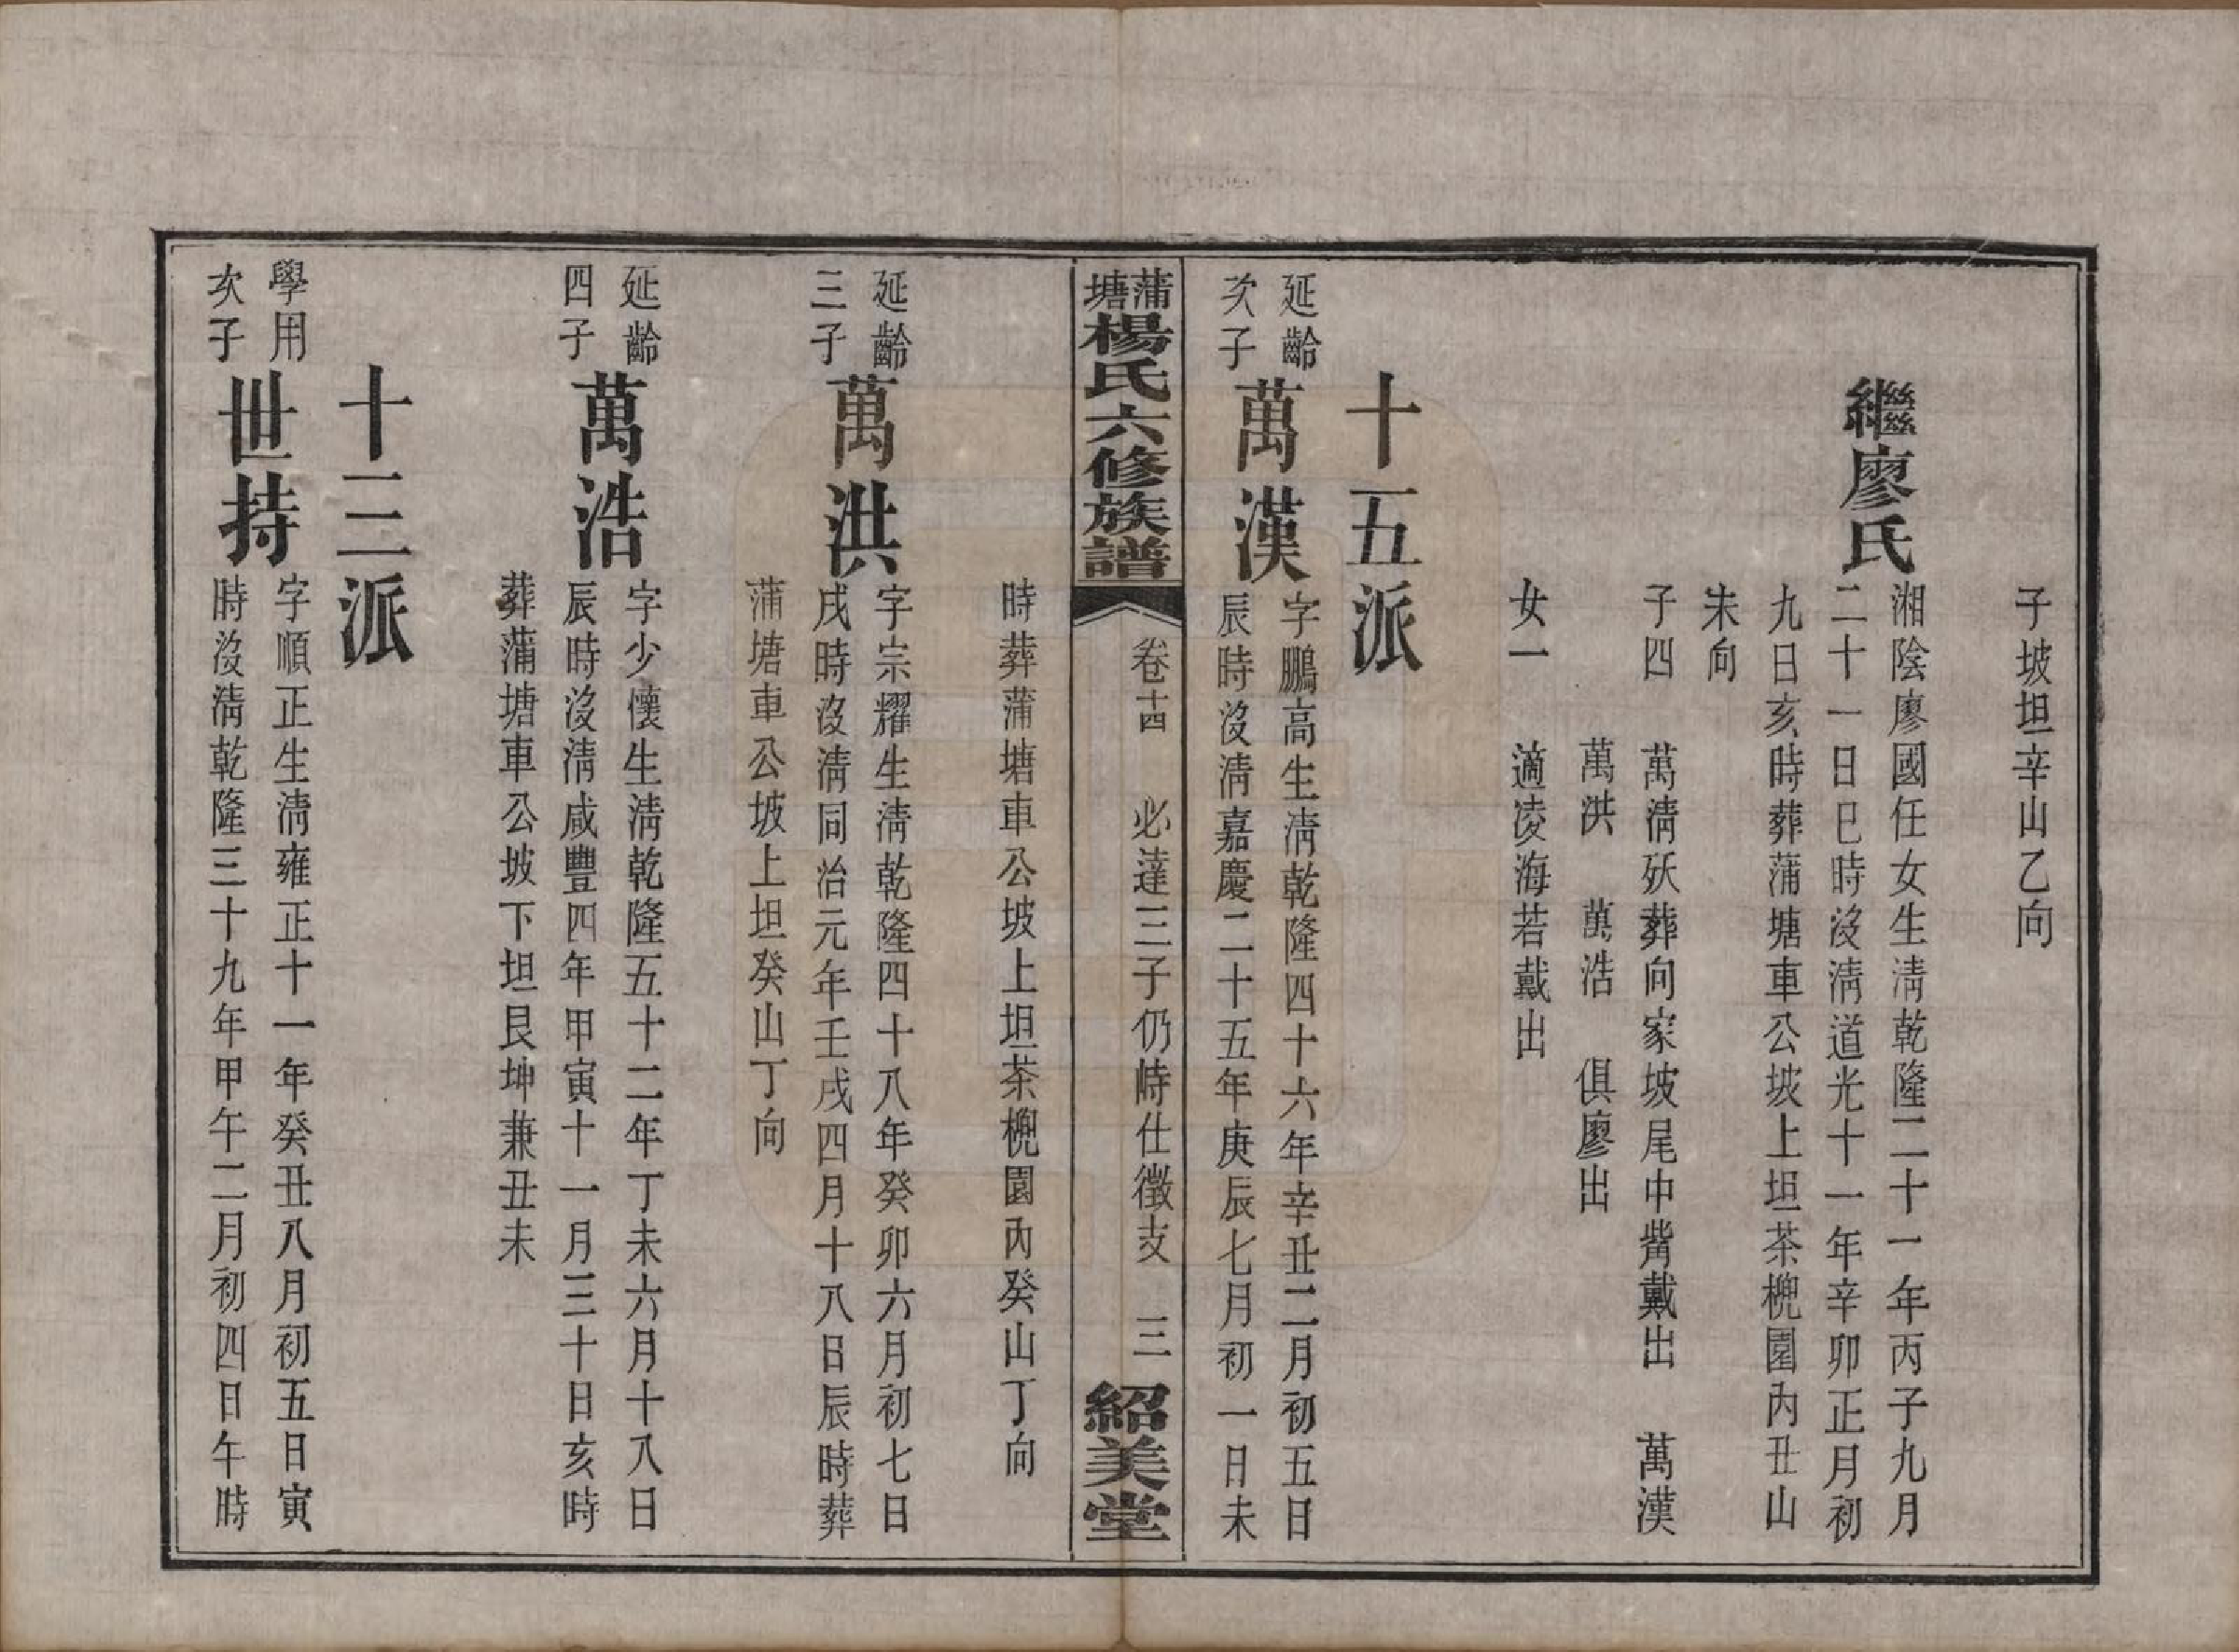 子坡坦辛山乙向
繼廖氏
湘陰廖國任女生淸乾隆二十一年丙子九月
二十一日巳時沒淸道光十一年辛卯正月初
九日亥時葬蒲塘車公坡上坦茶櫆園內丑山
未向
子四　萬淸殀葬向家坡尾中觜戴出　萬漢
萬洪　萬浩　俱廖出
女一　適凌海若戴出
十五派
延齡
次子
萬漢
字鵬高生淸乾隆四十六年辛丑二月初五日
辰時沒淸嘉慶二十五年庚辰七月初一日未
蒲塘楊氏六修族譜
卷十四　必達三子仍峙仕徵支　三
紹美堂
時葬蒲塘車公坡上坦茶櫆園內癸山丁向
延齡
三子
萬洪
字宗耀生淸乾隆四十八年癸卯六月初七日
戌時沒淸同治元年壬戌四月十八日辰時葬
蒲塘車公坡上坦癸山丁向
延齡
四子
萬浩
字少懷生淸乾隆五十二年丁未六月十八日
辰時沒淸咸豐四年甲寅十一月三十日亥時
葬蒲塘車公坡下坦艮坤兼丑未
十三派
學用
次子
世持
字順正生淸雍正十一年癸丑八月初五日寅
時沒淸乾隆三十九年甲午二月初四日午時